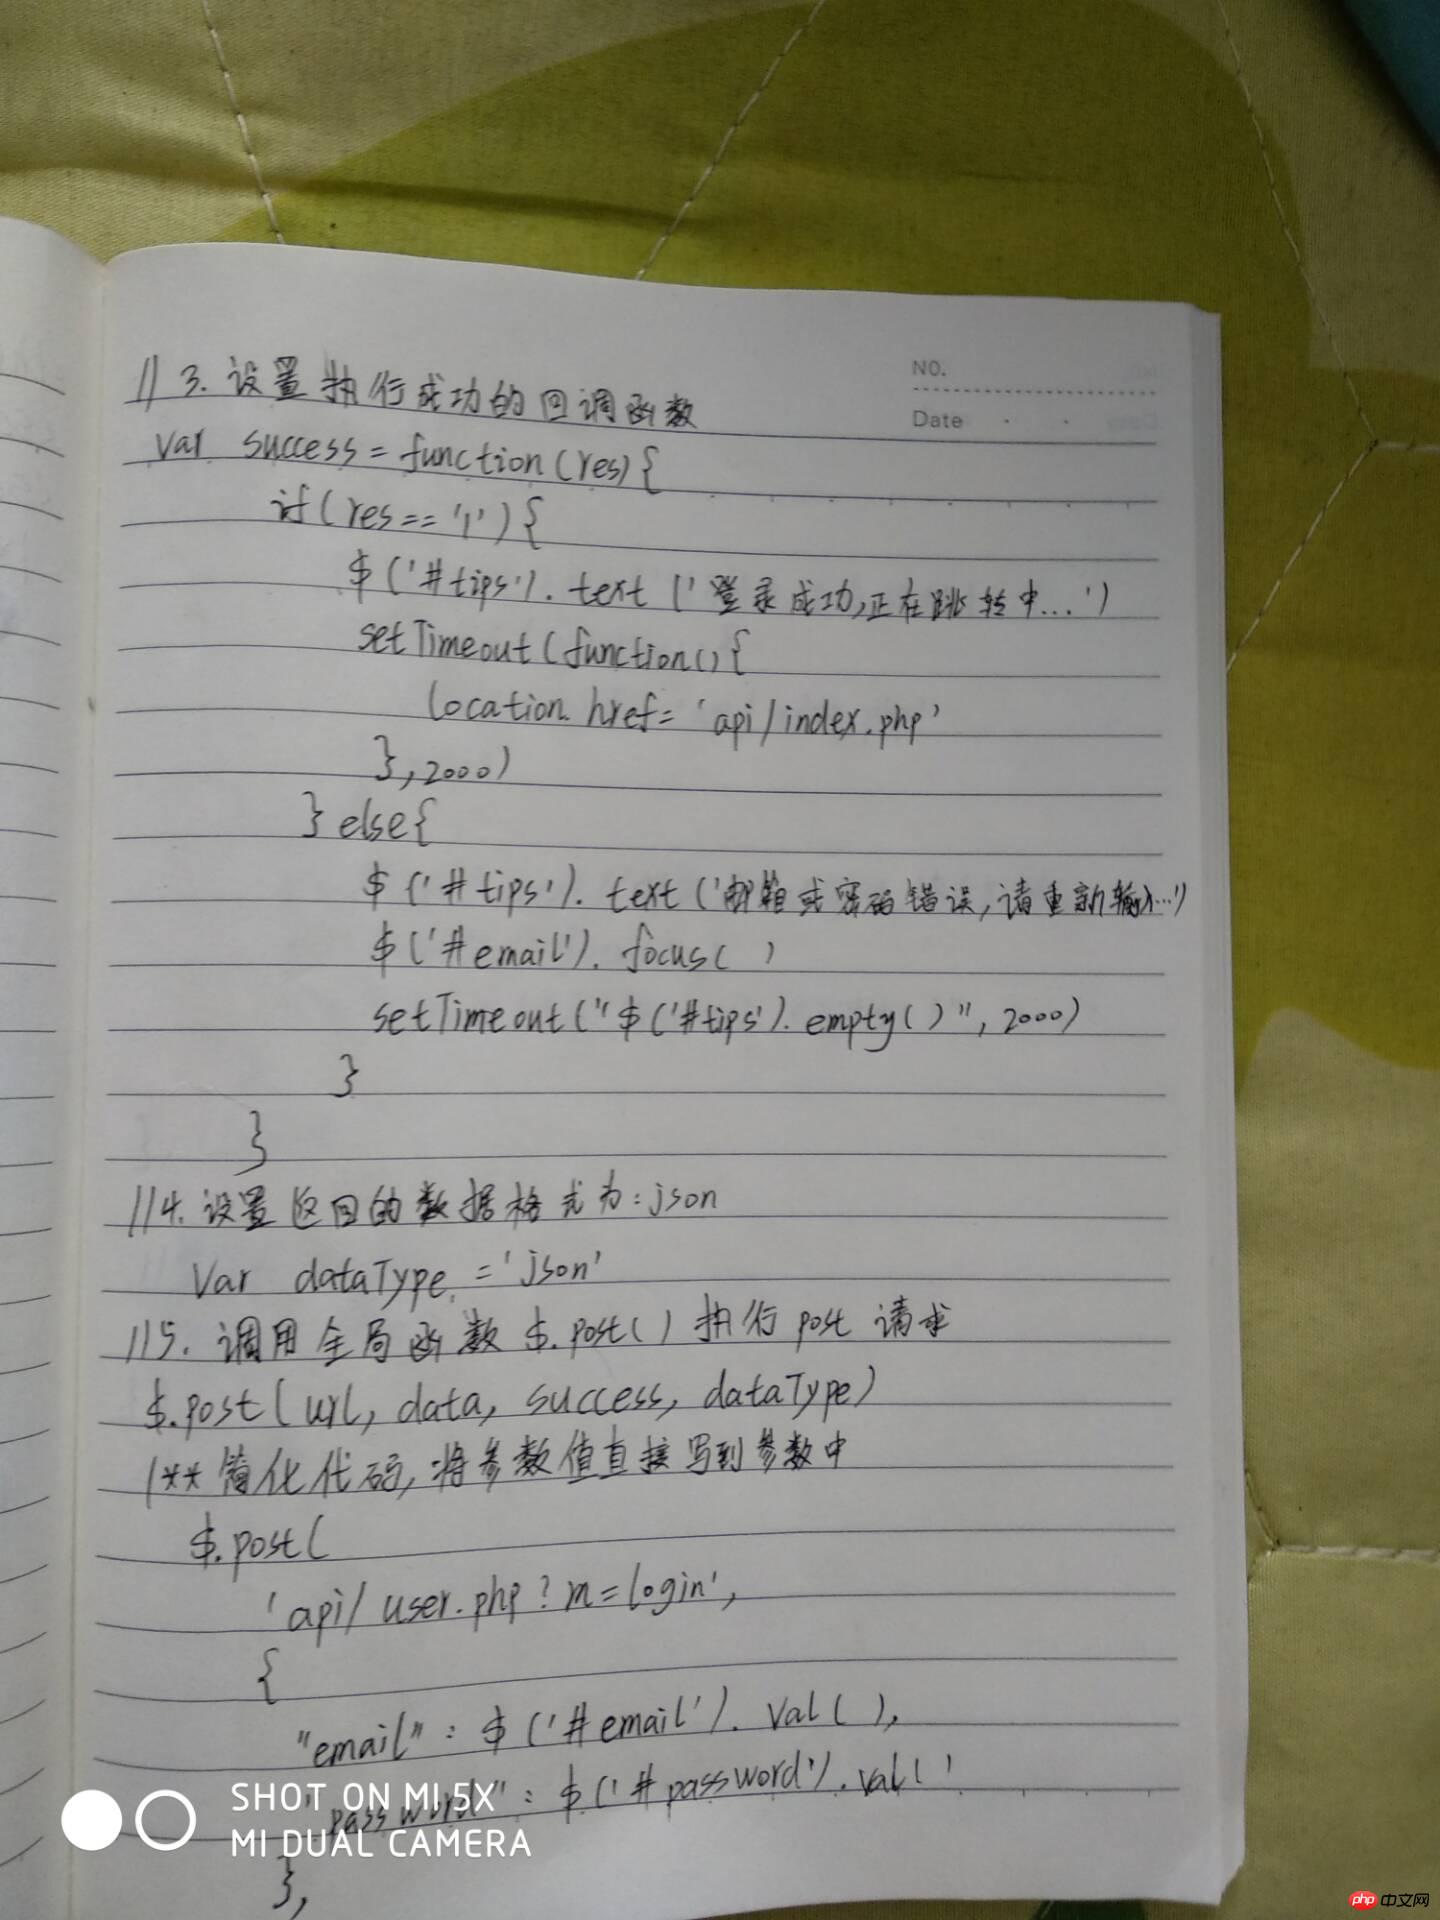 NO.
Date
//3.设置执行成功的回调函数
var success=function(res){
if(res=='1'){
$('#tips').text('登录成功,正在跳转中...')
setTimeout(function(){
location.href='api/index.php'
},2000)
}else{
$('#tips').text('邮箱或密码错误,请重新输入...')
$('#email').focus( )
setTimeout("$('#tips').empty()",2000)
}
}
//4.设置返回的数据格式为:json
Var dataType ='json'
//5.调用全局函数$.post()执行post请求
$.post(url, data, success, dataType)
/**简化代码,将参数值直接写到参数中
$.post(
'api/user.php?m=login',
{
"email":$('#email').val( ),
"password":$('#password').val()
},
SHOT ON MI 5X
MI DUAL CAMERA
php中文网